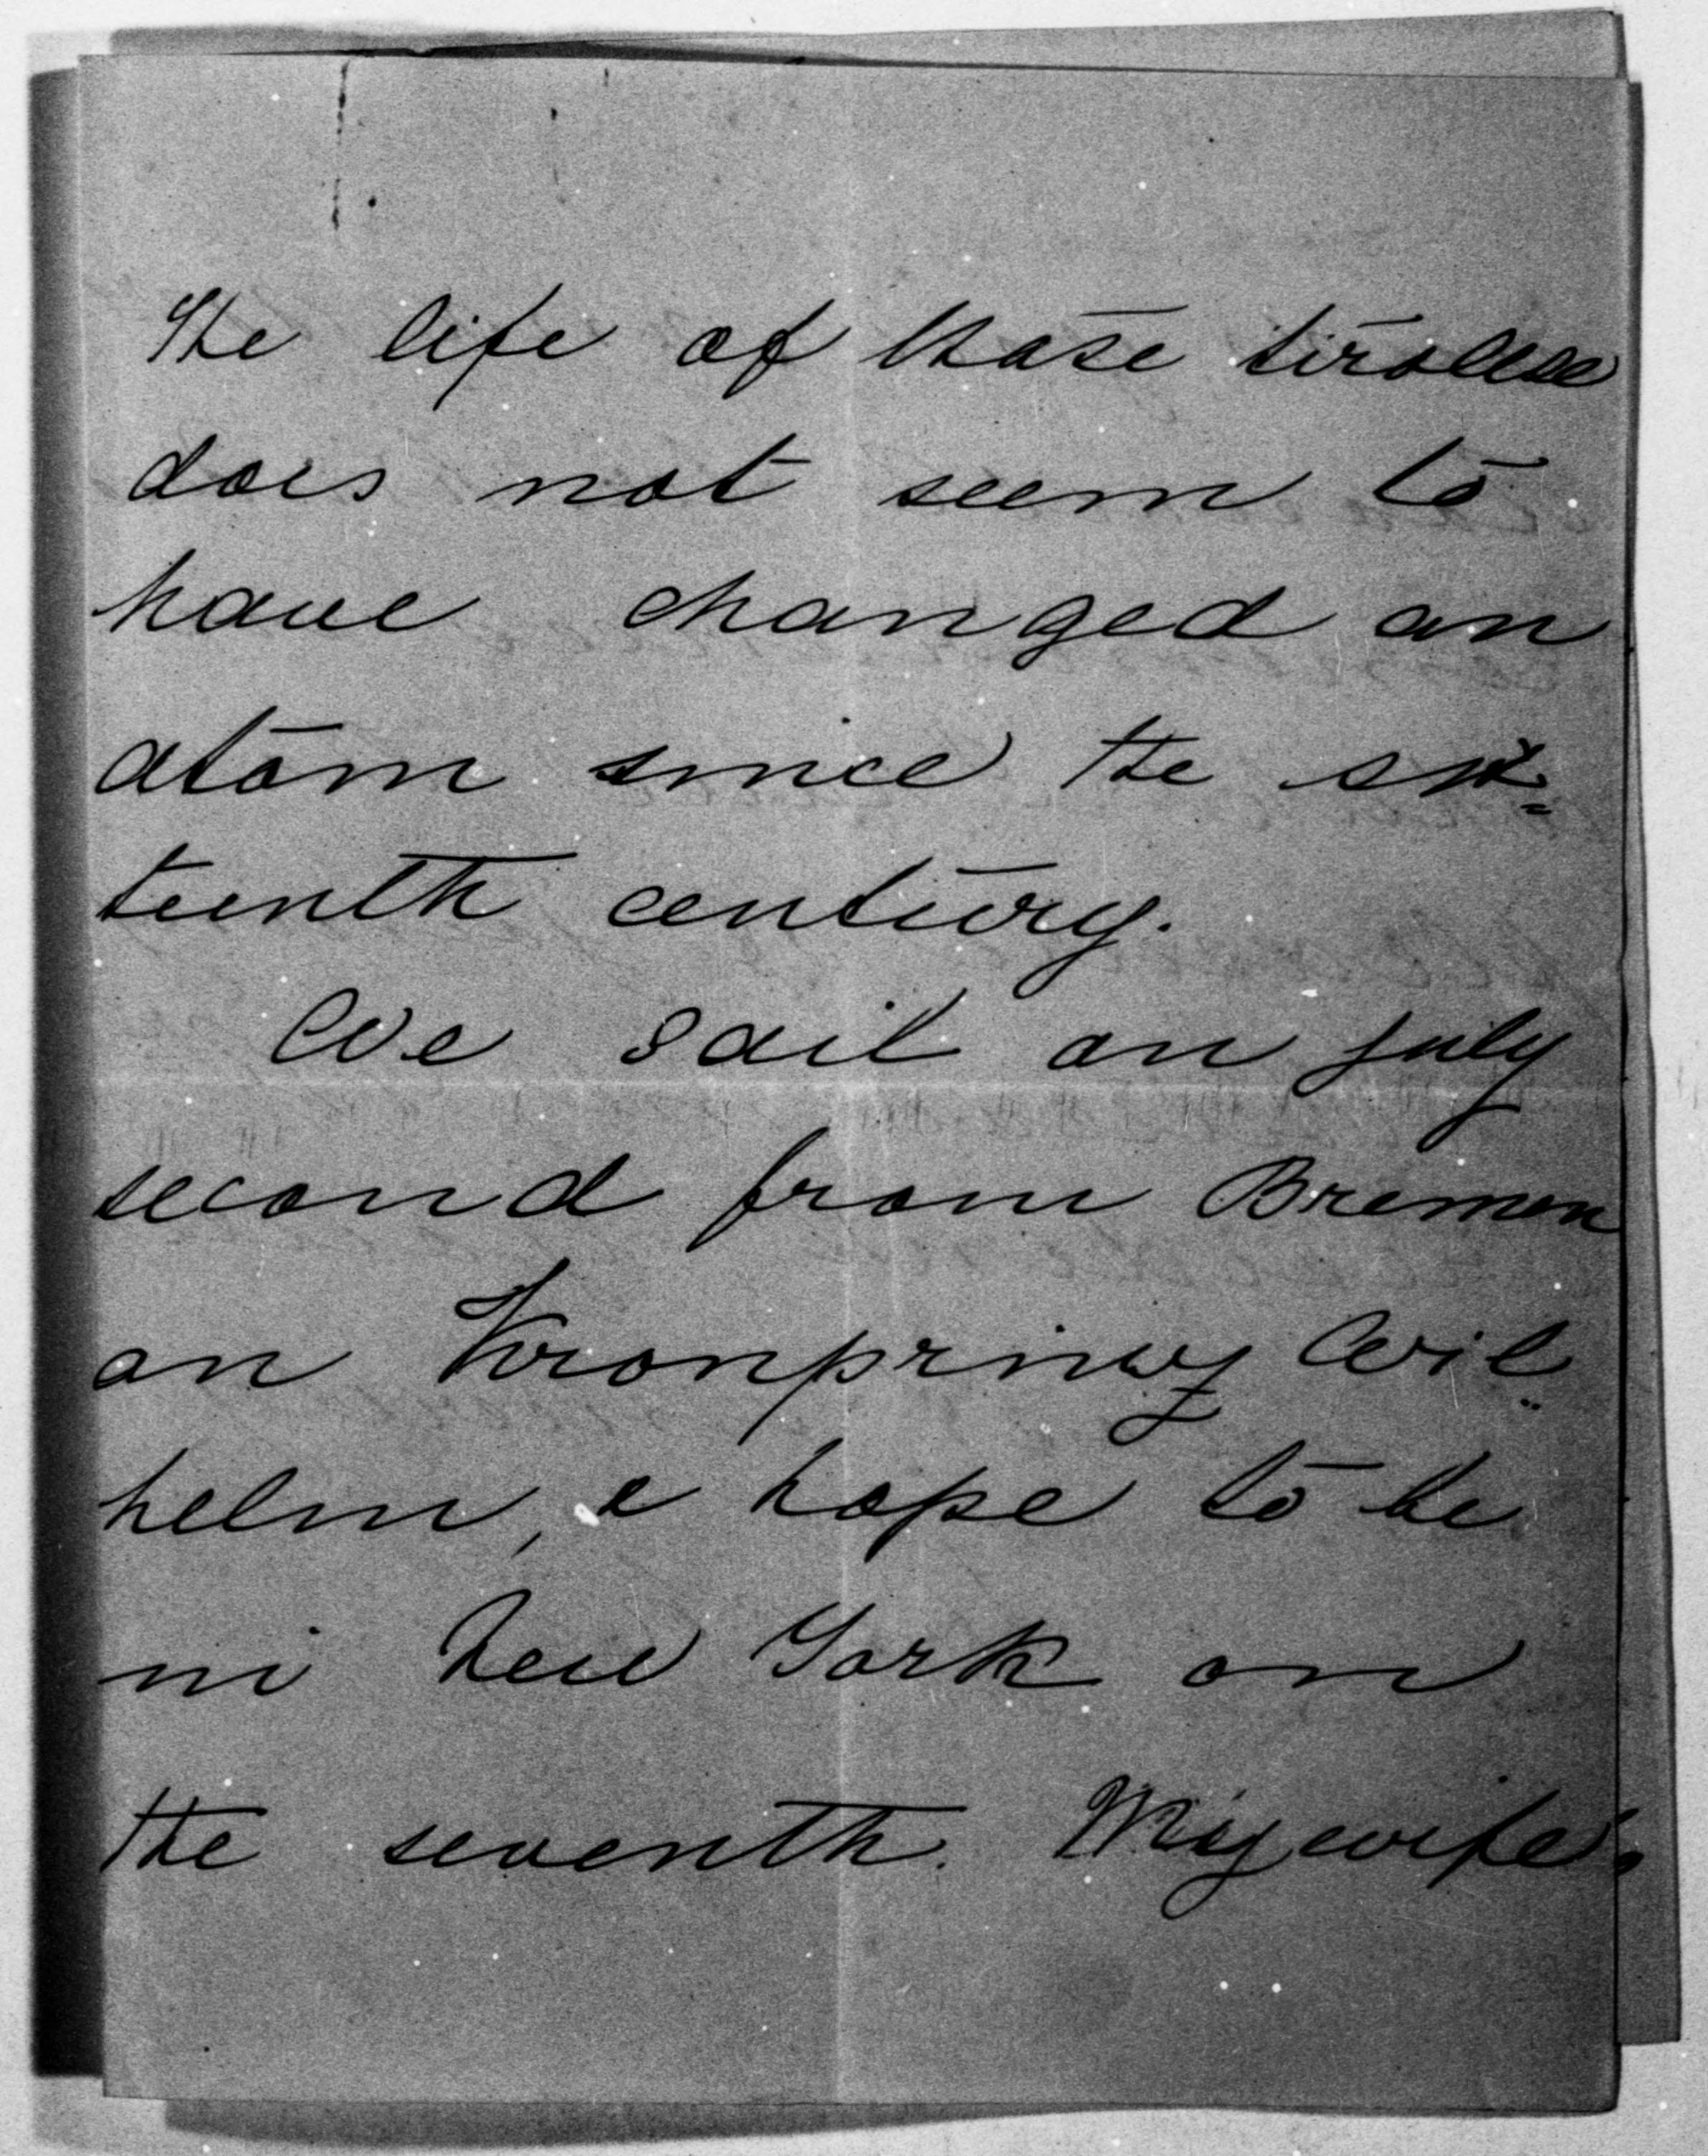 The life of those tirolese
does not seem to
have changed an
atom since the six=
teenth century.
We sail on july
second from Bremen
on Kronprinz Wil=
helm, & hope to be
in New York on
the seventh. My wife,